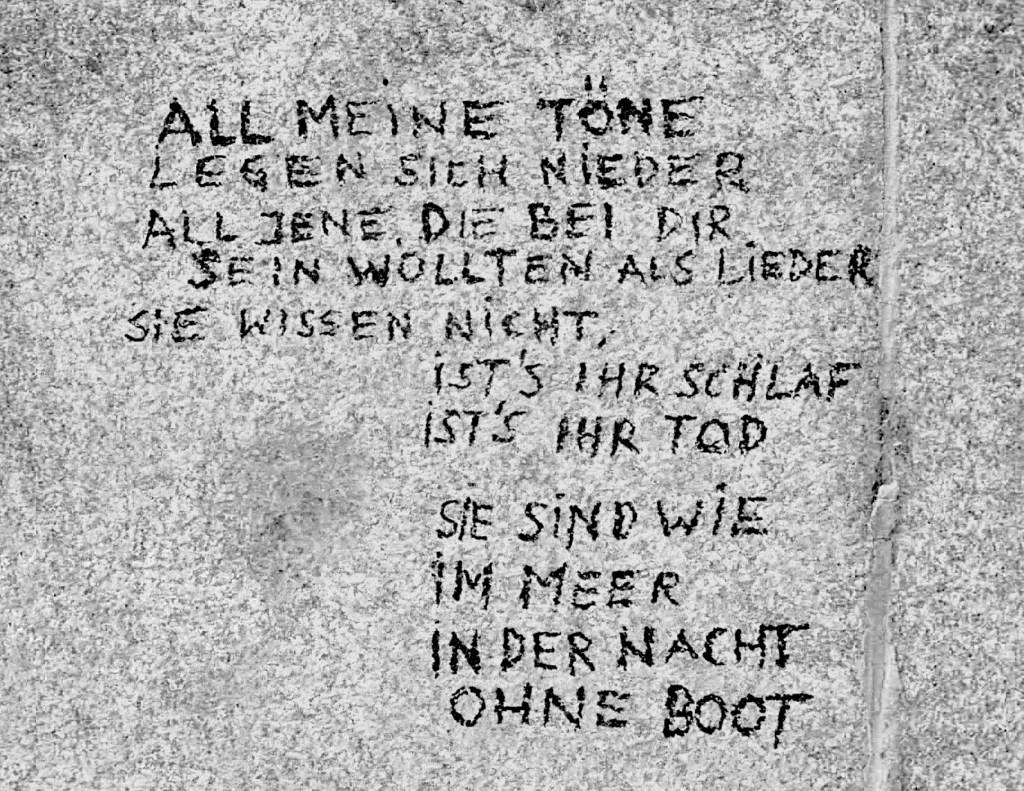 ALL MEiNE TÖNE
LEGEN SICH NiEDER
ALL JENE, DIE BEI DIR
SEIN WOLLTEN ALS LiEDER
SiE WISSEN NiCHT,
iST'S IHR SCHLAF
iST'S IHR TOD
SIE SiND WiE
iM MEER
IN DER NACHT
OHNE BOOT